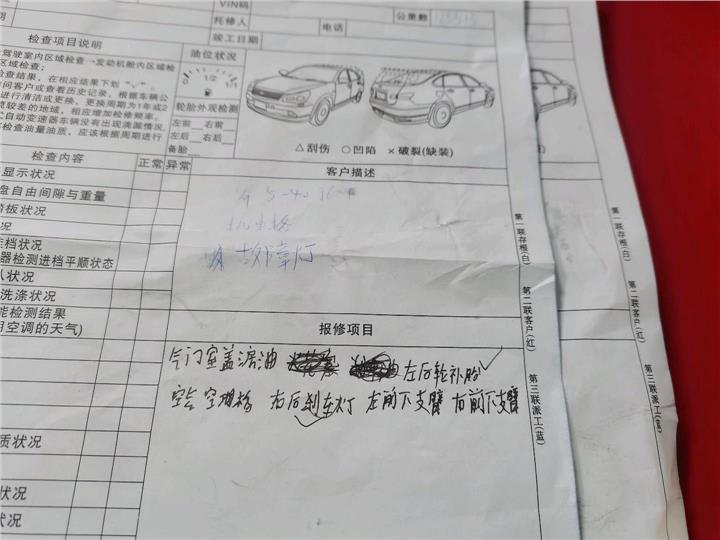 VIN码
托修人
电话
公里数
竣工日期
检查项目说明
驾驶室内区域检查→发动机舱内区域检
区域检查;
检查结果,在相应结果下划"√"。
询问客户或查看历史记录,根据车辆公
进行清洁或更换,更换周期为1年或2
境较差的地域,相应增加检修频率。
自动变速器车辆没有出现滴漏情况,
检查油量油质,应该根据周期进行
油位状况
1/2
轮胎外观检测
左前 右前
左后 右后
备胎
△刮伤 ○凹陷 ×破裂(缺装)
检查内容 正常 异常
显示状况
盘自由间隙与重量
踏板状况
挂档状况
器检测进档平顺状态
状况
洗涤状况
能检测结果
用空调的天气)
质状况
状况
状况
客户描述
5-40
机油格
故障灯
报修项目
气门室盖漏油 左后轮补胎 ✓
空气 空调格 右后刹车灯 左前下支臂 右前下支臂
第一联存根(白)
第二联客户(红)
第三联派工(蓝)
第一联存根(白)
第二联客户(红)
第三联派工(蓝)